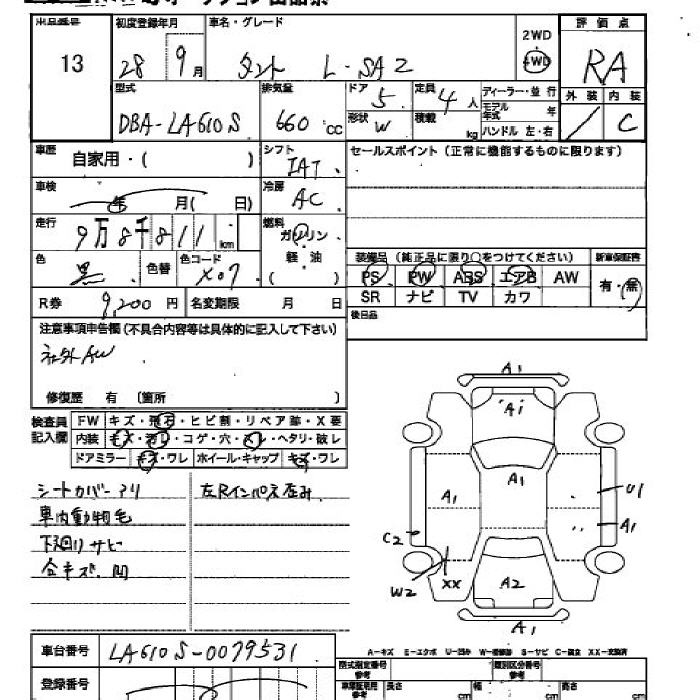 出品番号 初度登録年月 車名・グレード 2WD 4WD 評価点
13 28 9月 タント L・SA2 RA
型式 排気量 ドア 5 定員 4人 ディーラー・並行 外装 内装
DBA-LA610S 660cc 形状 W 積載 kg モデル年式 年 ハンドル 左・右 / C
車歴 自家用・( ) シフト IAT セールスポイント(正常に機能するものに限ります)
車検 年 月( 日) 冷房 AC
走行 9万8千811km 燃料 ガソリン
色 黒 色替 色コード X07 軽・油 ( )
装備品(純正品に限り○をつけてください) 新車保証書
PS PW ABS エアB AW 有・無
SR ナビ TV カワ
R券 9,200円 名変期限 月 日
後日品
注意事項申告欄(不具合内容等は具体的に記入して下さい)
社外AW
修復歴 有 〔箇所 〕
検査員記入欄 FW キズ・飛石・ヒビ割・リペア跡・X要
内装 キズ・汚レ・コゲ・穴・スレ・ヘタリ・破レ
ドアミラー キズ・ワレ ホイール・キャップ キズ・ワレ
シートカバーアリ 左Rインパネ歪み
車内動物毛
下廻りサビ
A1
A1
A1
A1
U1
A1
C2
W2
XX
A2
A1
A-キズ E-エクボ U-凹み W-補修跡 S-サビ C-腐食 XX-交換済
車台番号 LA610S-0079531
型式指定番号 参考 類別区分番号 参考
登録番号 長さ cm 幅 cm 高さ cm